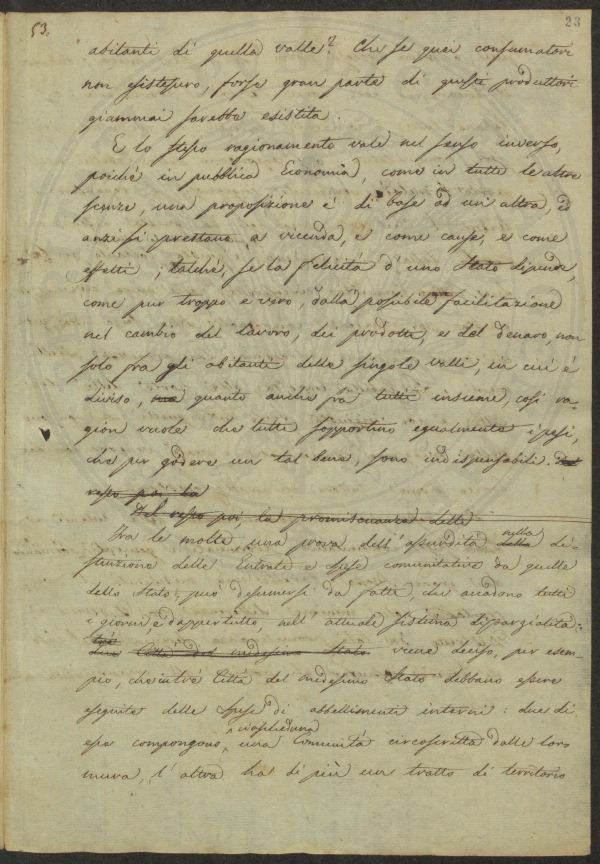 53.
23
abitanti di quella valle? Che se quei consumatori
non esistessero, forse gran parte di questi produttori
giammai sarebbe esistita.
E lo stesso ragionamento vale nel senso inverso,
poichè in pubblica Economia, come in tutte le altre
scienze, una proposizione è di base ad un' altra, ed
anzi si prestano a vicenda, e come cause, e come
effetti; talchè, se la felicità d' uno Stato dipende,
come pur troppo è vero, dalla possibile facilitazione
nel cambio del lavoro, dei prodotti, e del denaro, non
solo fra gli abitanti delle singole valli, in cui è
diviso, quanto anche fra tutti insieme, così ra-
gion vuole che tutti sopportino egualmente i pesi,
che per godere un tal bene, sono indispensabili. Del
resto poi la
Del resto poi, la promiscuanza delle
Fra le molte, una prova dell' assurdità della nella di-
struzione delle Entrate e Spese comunitative da quelle
dello Stato, può desumersi da fatti, che accadono tutti
i giorni, e dappertutto, nell' attuale sistema di parzialità:
tre Città del medesimo Stato viene deciso, per esem-
pio, che in tre Città del medesimo Stato debbano essere
eseguite delle Spese di abbellimenti interni: due di
esse compongono, ciascheduna una Comunità circoscritta dalle loro
mura, l' altra ha di più un tratto di territorio